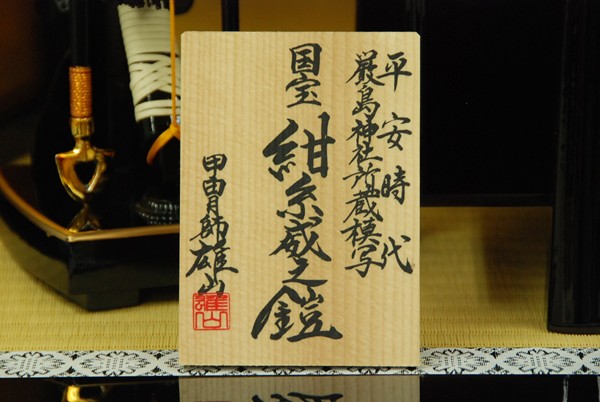 平安時代
厳島神社所蔵模写
国宝 紺糸威之鎧
甲冑師雄山
雄山